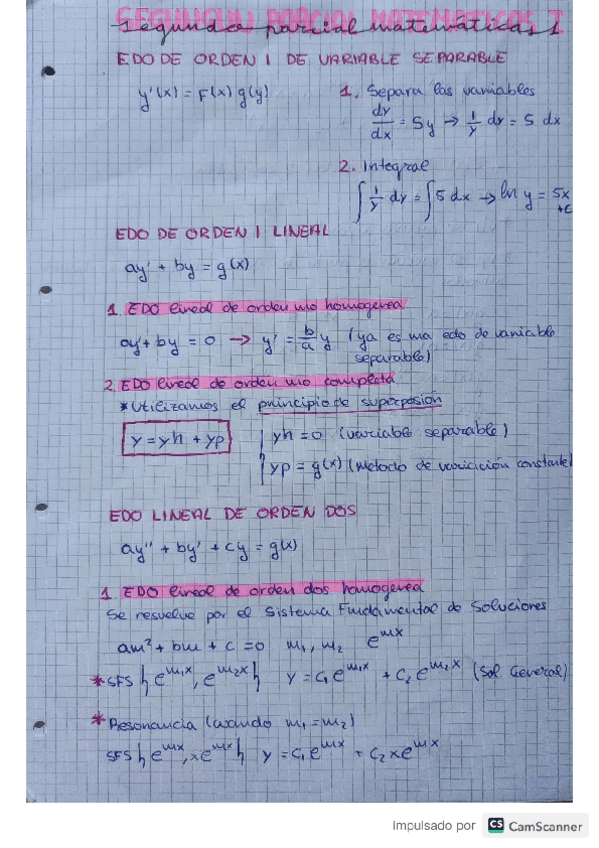 SEGUNDO PARCIAL MATEMÁTICAS I
Segundo parcial matemáticas 1
EDO DE ORDEN 1 DE VARIABLE SEPARABLE
y'(x) = F(x) g(y)
1. Separa las variables
dy/dx = 5y → 1/y dy = 5 dx
2. Integral
∫ 1/y dy = ∫ 5 dx → ln y = 5x + C
EDO DE ORDEN 1 LINEAL
ay' + by = g(x)
1. EDO lineal de orden uno homogenea
ay' + by = 0 → y' = b/a y (ya es una edo de variable
separable)
2. EDO lineal de orden uno completa
* Utilizamos el principio de superposión
y = yh + yp
yh = 0 (variable separable)
yp = g(x) (Metodo de variación constante)
EDO LINEAL DE ORDEN DOS
ay'' + by' + cy = g(x)
1. EDO lineal de orden dos homogenea
Se resuelve por el Sistema Fundamental de Soluciones
am² + bm + c = 0 m₁, m₂ e^mx
* SFS { e^m₁x, e^m₂x } y = c₁e^m₁x + c₂e^m₂x (Sol. General)
* Resonancia (cuando m₁ = m₂)
SFS { e^mx, xe^mx } y = c₁e^mx + c₂xe^mx
Impulsado por CS CamScanner